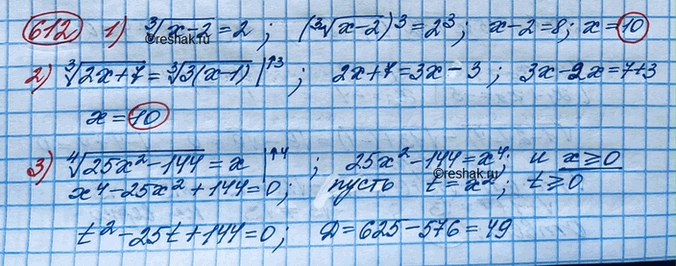 612 1) ∛(x-2) = 2; (∛(x-2))³ = 2³; x-2=8; x=10
©reshak.ru
2) ∛(2x+7) = ∛(3(x-1)) |↑3; 2x+7=3x-3; 3x-2x=7+3
x=10
3) ⁴√(25x²-144) = x |↑4; 25x²-144=x⁴; и x≥0
©reshak.ru
x⁴-25x²+144=0; пусть t=x²; t≥0
t²-25t+144=0; Д=625-576=49